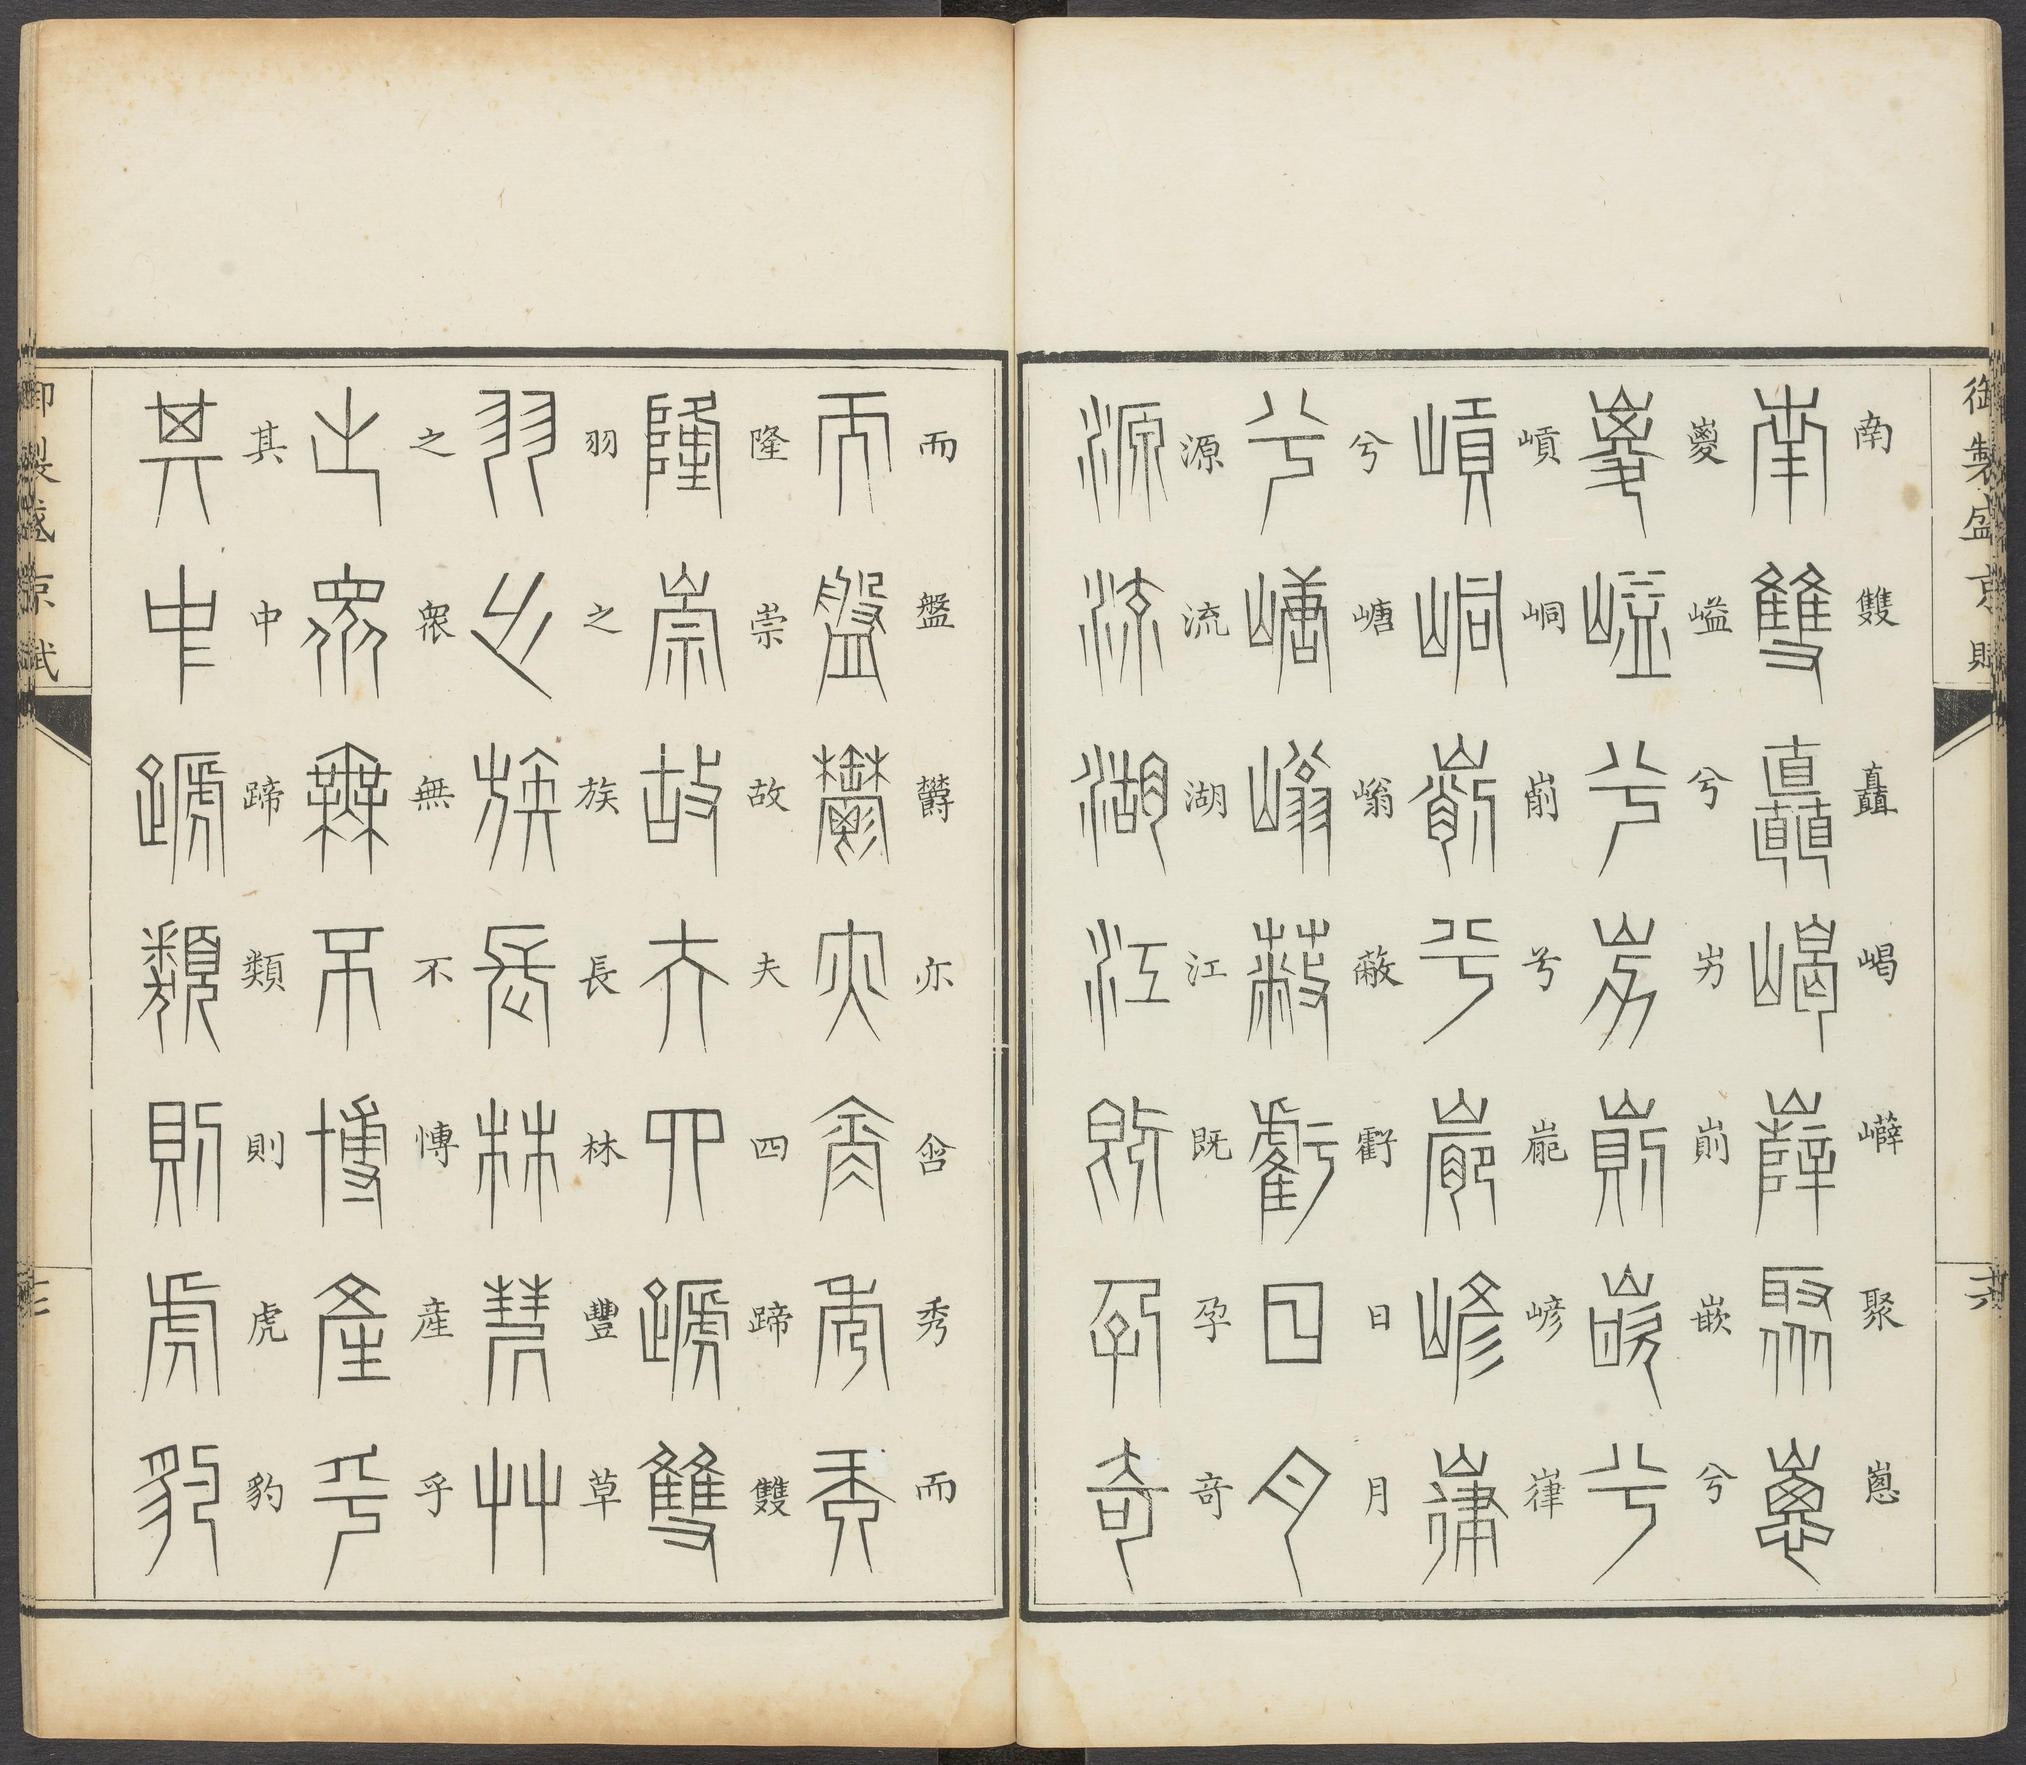 御製盛京賦
南雙矗嵑嶭聚
嵏兮屴崱嵌兮
峒兮嵃嵂
兮嵣嵡蔽虧日月
源流湖江既孕奇
而盤欝亦含秀而
隆崇故夫四蹄雙
羽之族長林豐草
之衆無不博産乎
其中蹄類則虎豹
御製盛京賦